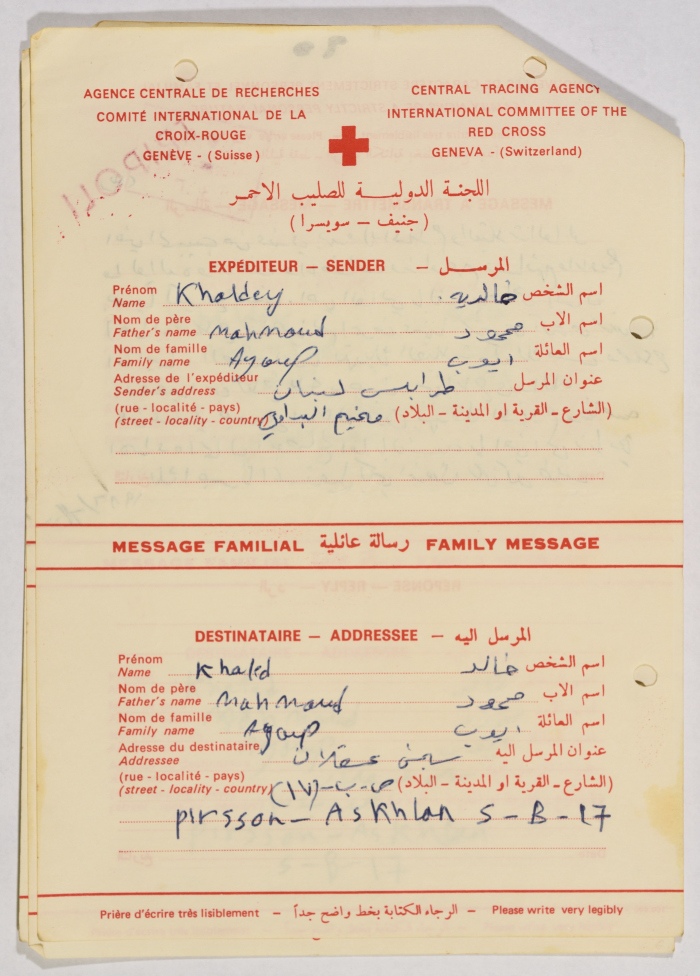 AGENCE CENTRALE DE RECHERCHES
COMITÉ INTERNATIONAL DE LA
CROIX-ROUGE
GENÈVE - (Suisse)
CENTRAL TRACING AGENCY
INTERNATIONAL COMMITTEE OF THE
RED CROSS
GENEVA - (Switzerland)
TRIPOLI
اللجنة الدولية للصليب الاحمر
(جنيف - سويسرا)
EXPÉDITEUR - SENDER - المرسل
Prénom
Name Khaldey خالديه اسم الشخص
Nom de père
Father's name Mahmoud محمود اسم الاب
Nom de famille
Family name Ayoup ايوب اسم العائلة
Adresse de l'expéditeur
Sender's address طرابلس لبنان عنوان المرسل
(rue - localité - pays)
(street - locality - country) مخيم البداوي (الشارع - القرية او المدينة - البلاد)
MESSAGE FAMILIAL رسالة عائلية FAMILY MESSAGE
DESTINATAIRE - ADDRESSEE - المرسل اليه
Prénom
Name Khaled خالد اسم الشخص
Nom de père
Father's name Mahmoud محمود اسم الاب
Nom de famille
Family name Ayoup ايوب اسم العائلة
Adresse du destinataire
Addressee سجن عسقلان عنوان المرسل اليه
(rue - localité - pays)
(street - locality - country) ص-ب-(١٧) (الشارع - القرية او المدينة - البلاد)
pirsson - Askhlan S-B-17
Prière d'écrire très lisiblement - الرجاء الكتابة بخط واضح جداً - Please write very legibly